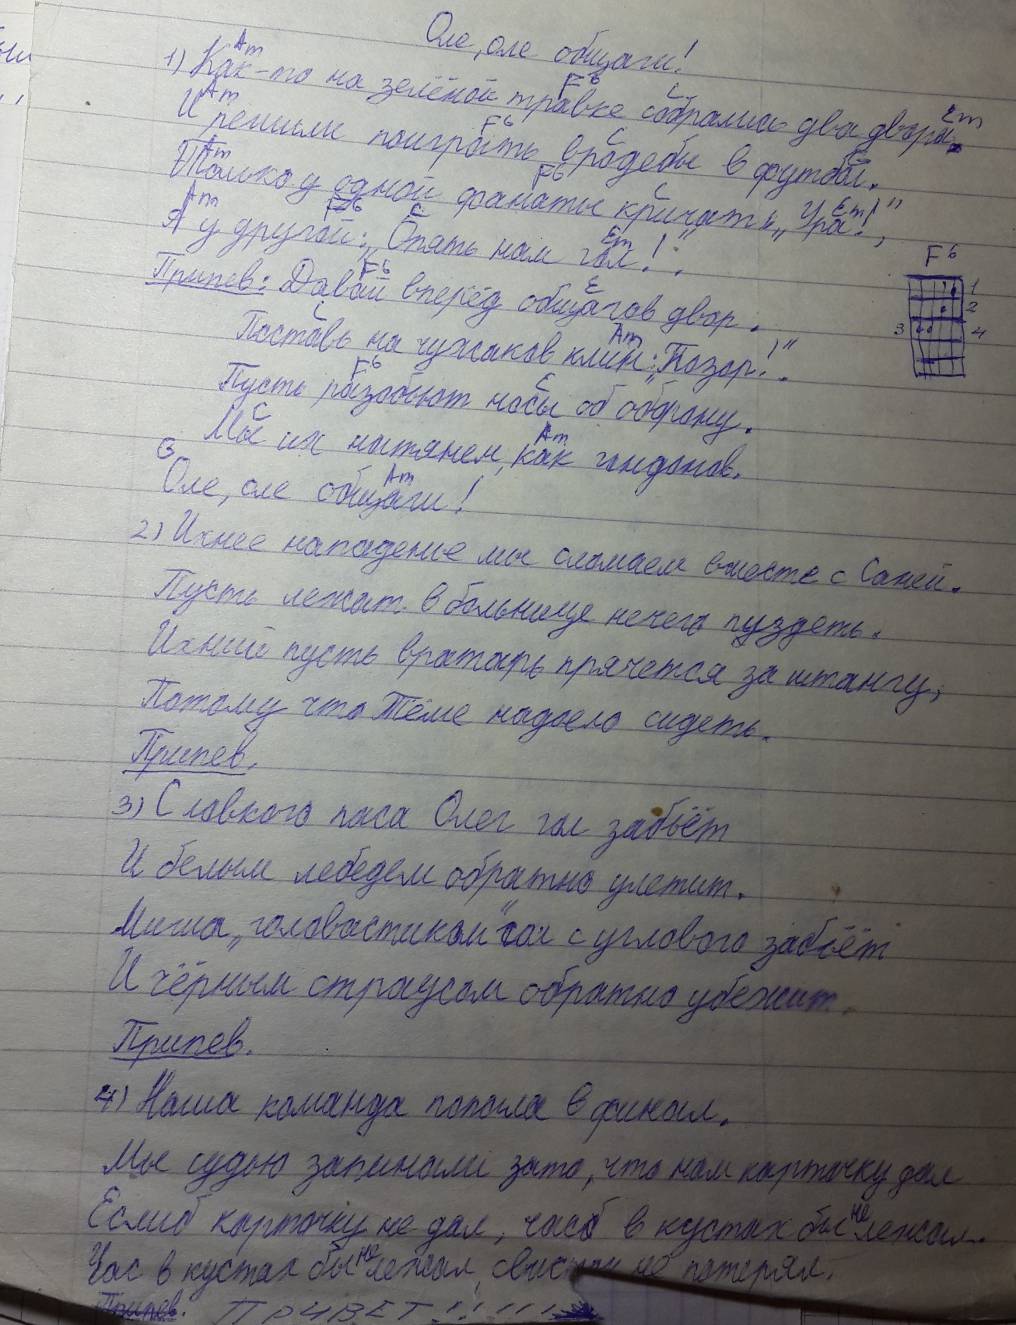 Оле, оле общаги!
Am
1) Как-то на зелёной травке собрались два двора.
F6 C Em
Am F6 C E
И решили поиграть вродебы в футбол.
Am F6 C Em
Только у одной фанаты кричать „Ура!",
Am F6 C Em
А у другой: „Опять нам гол!".
F6 C
Припев: Давай вперёд общагов двор.
C Am
Поставь на чужаков клин: „Позор!".
F6 C
Пусть разобьют носы об оборону.
C Am
Мы их натянем, как гондонов.
G Am
Оле, оле общаги!
F6
1
2
3 4
2) Ихнее нападение мы сломаем вместе с Саней.
Пусть лежат в больнице нечего пуздеть.
Ихний пусть вратарь прячется за штангу,
Потому что Тёме надоело сидеть.
Припев.
3) С ловкого паса Олег гол забьёт
И белым лебедем обратно улетит.
Миша „головастиком" гол с углового забьёт
И чёрным страусом обратно убежит.
Припев.
4) Наша команда попала в финал.
Мы судью запинали зато, что нам карточку дал
Еслиб карточку не дал, часб в кустах бы не лежал.
Час в кустах бы не лежал, свисток не потерял.
Припев. ПРИВЕТ!!!!!!